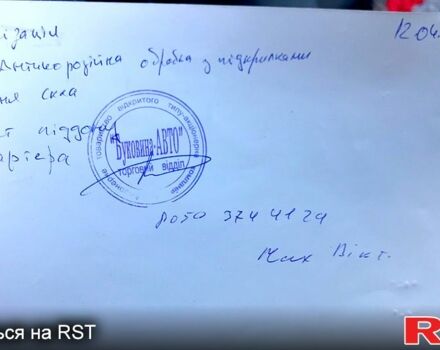 ізація
12.04.
Антикорозійна обробка з підкрилками
ня скла
т піддону
артера
товариство відкритого типу-акціонерна компанія
"Буковина-АВТО"
торговий відділ
374 41 24
Вікт.
ься на RST
R